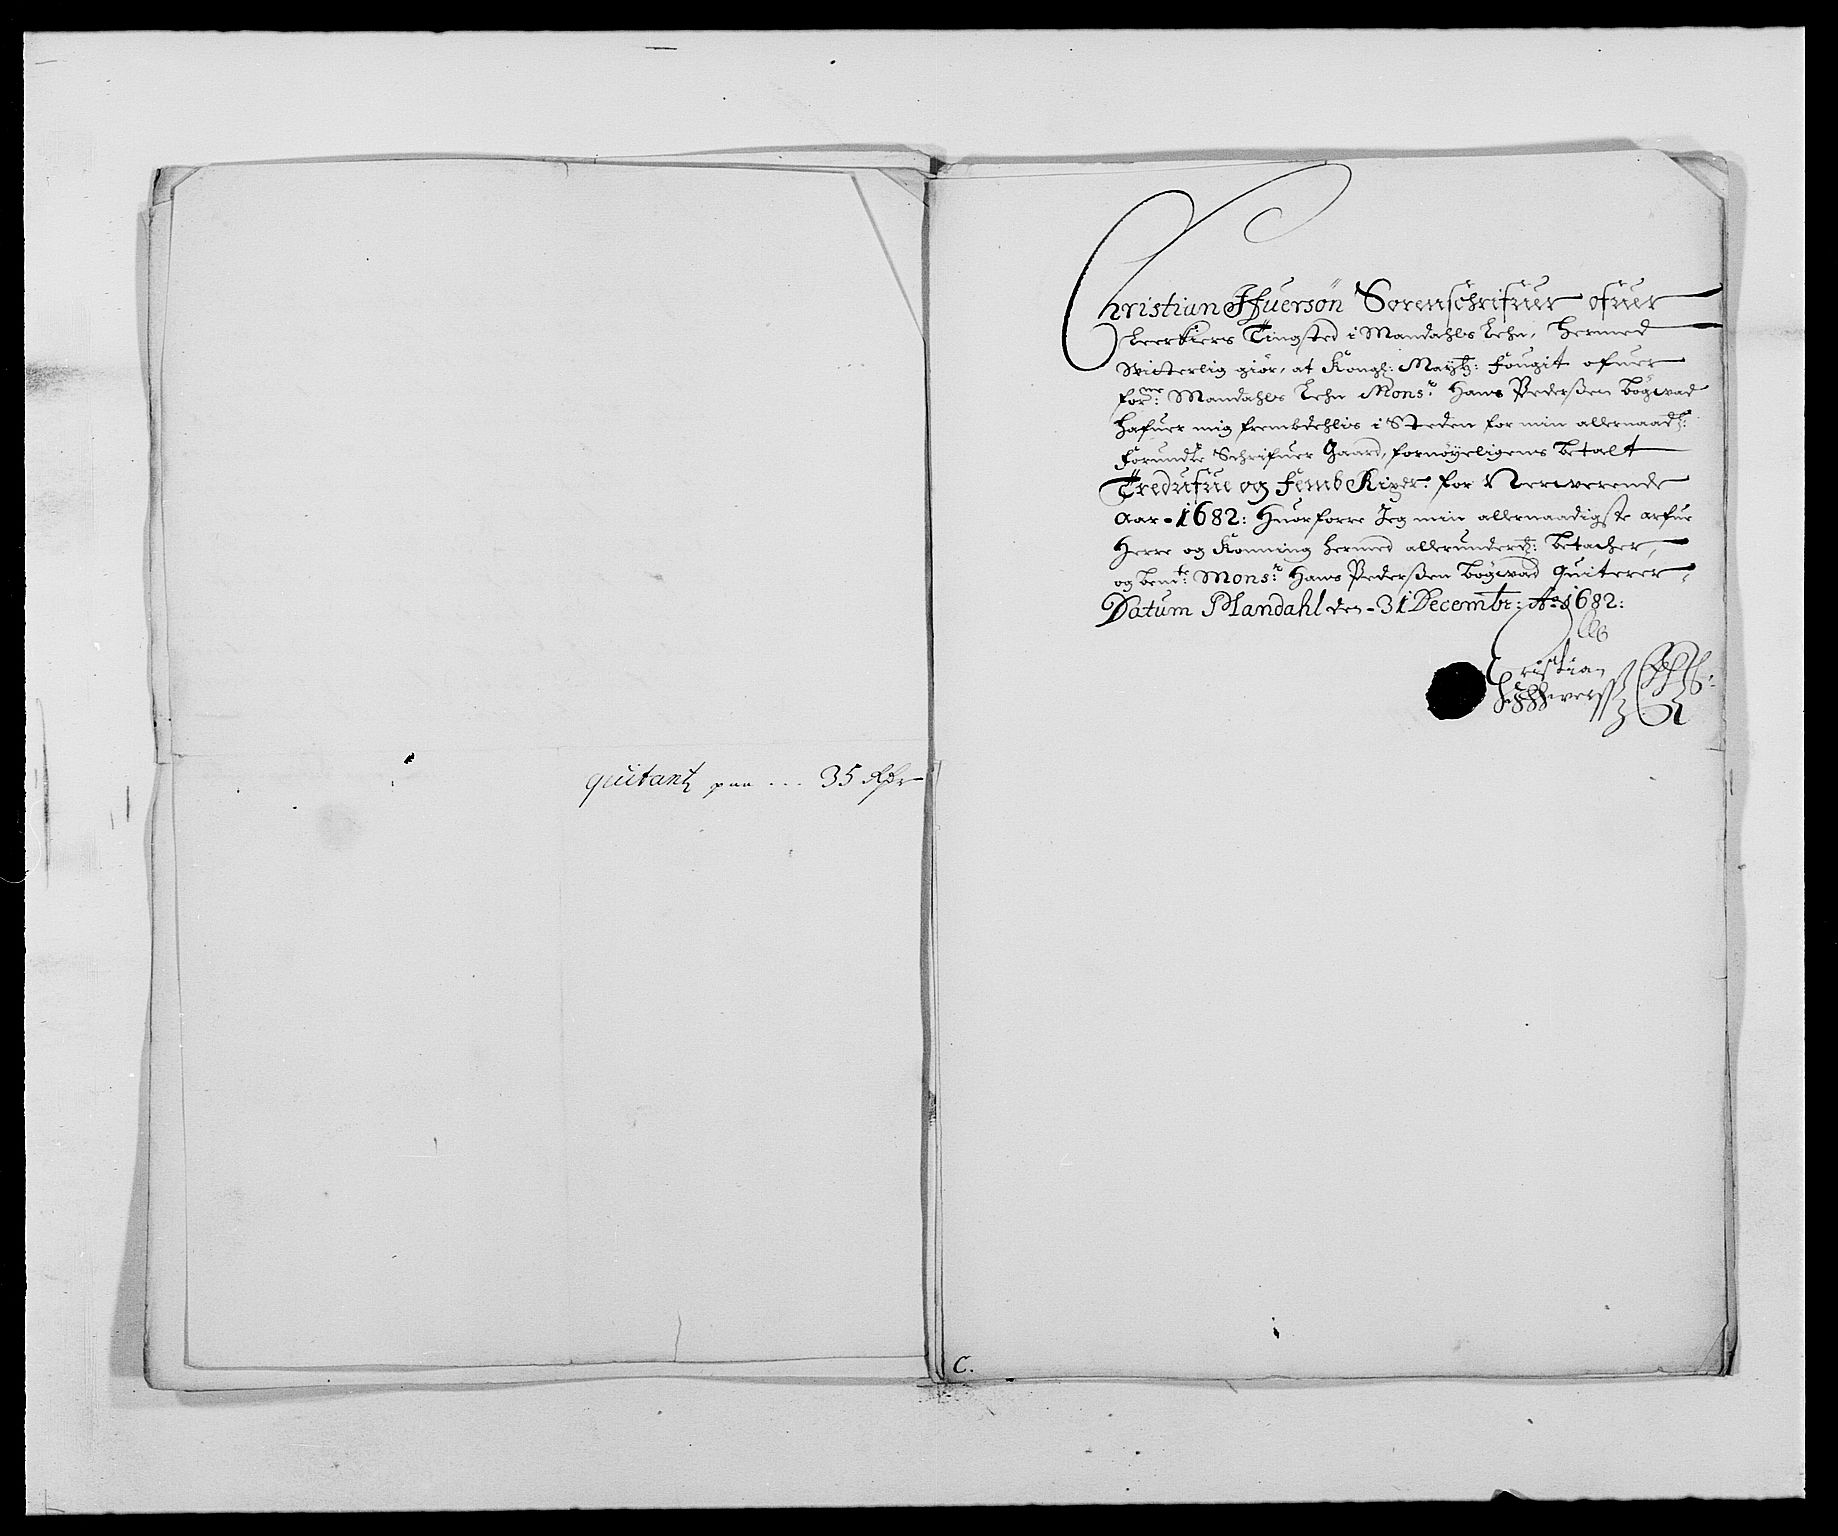 quitantz paa ... 35 Rdr
Christian Ifuersøn Sorenschrifuer ofuer
Leerkiers Tingsted i Mandahls Lehn, hermed
Witterlig giør, at Kongl: Maytz: Fougit ofuer
forne: Mandahls Lehn Monsr: Hans Pederßen Bögwad
hafuer mig frembdehlis i Steden for min allernaadl:
forundte Schrifuer Gaard, fornøyeligens betalt
Tredufue og Femb Rixdr: for Nerwerende
Aar - 1682: Huorforre Jeg min allernaadigste arfue
Herre og Konning hermed allerunderd: betacher,
og bemte: Monsr: Hans Pederßen Bögwad quiterer,
Datum Mandahl den - 31 Decembr: Ao 1682:
Christian
C.